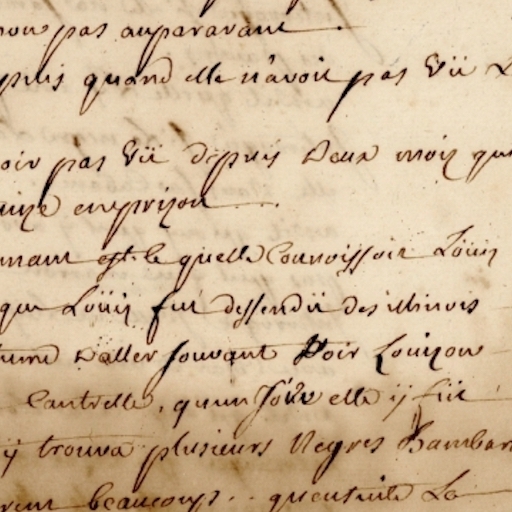 non pas auparavant .
puis quand elle n'avoit pas vü L
oir pas Vü depuis Deux mois que
enprizon .
nant est-le quelle Connoissoit Loüis
que Loüis fut dessendü des illinois
tume D'aller souvant Voir Louizon
Cantrelle, qu'un Jour elle ÿ fut
ÿ trouva plusieurs Negres Bambar
rent beaucoup .. qu'ensuite La